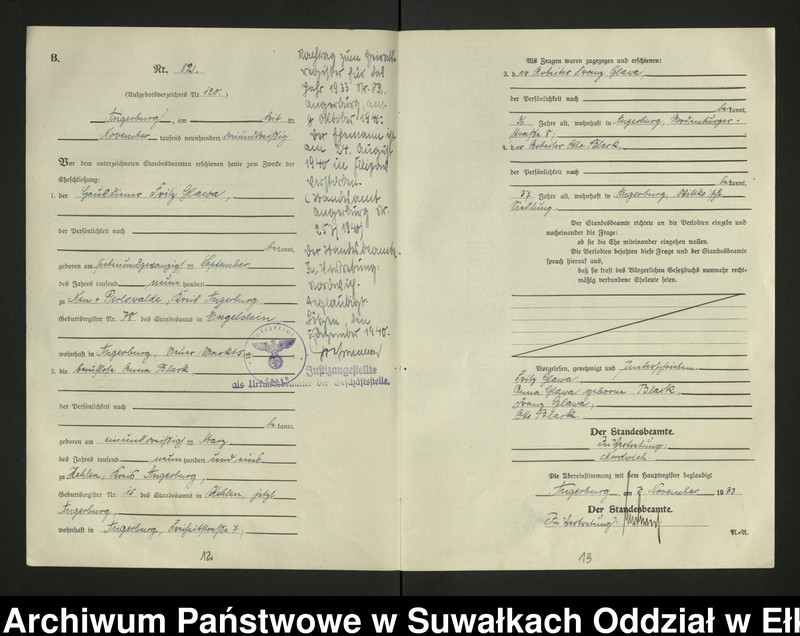 B.
Nr. 82.
(Aufgebotsverzeichnis Nr. 120.)
Angerburg, am
November tausend neunhundert dreiunddreißig
Vor dem unterzeichneten Standesbeamten erschienen heute zum Zwecke der
Eheschließung:
1. der Fritz Glawa,
der Persönlichkeit nach
be kannt,
geboren am siebenundzwanzigsten September
des Jahres tausend neun hundert
zu Neu-Perlswalde, Kreis Angerburg
Geburtsregister Nr. 78 des Standesamts in Engelstein
wohnhaft in Angerburg, Neuer Markt
2. die berufslose Anna Black
der Persönlichkeit nach
be kannt,
geboren am einunddreißigsten März
des Jahres tausend neun hundert und eins
zu Kehlen, Kreis Angerburg,
Geburtsregister Nr. des Standesamts in Kehlen, jetzt
Angerburg,
wohnhaft in Angerburg, Freiheitstraße 7,
12
Nachtrag zum Heirats-
register für das
Jahr 1933 Nr. 82.
Angerburg, am
Oktober 1940.
Der Ehemann ist
am 24. August
1940 in
verstorben.
(Standesamt
Angerburg Nr.
1940)
Der Standesbeamte.
In Vertretung:
Nordwich.
Beglaubigt
den
1940.
Justizangestellte
als Urkundsbeamter der Geschäftsstelle.
Als Zeugen waren zugezogen und erschienen:
3. der Arbeiter Franz Glawa,
der Persönlichkeit nach
be kannt,
Jahre alt, wohnhaft in Angerburg, Nordenburger-
straße 8;
4. der Arbeiter Otto Black,
der Persönlichkeit nach
be kannt,
37 Jahre alt, wohnhaft in Angerburg,
Siedlung
Der Standesbeamte richtete an die Verlobten einzeln und
nacheinander die Frage:
ob sie die Ehe miteinander eingehen wollen.
Die Verlobten bejahten diese Frage und der Standesbeamte
sprach hierauf aus,
daß sie kraft des Bürgerlichen Gesetzbuchs nunmehr recht-
mäßig verbundene Eheleute seien.
Vorgelesen, genehmigt und unterschrieben.
Fritz Glawa
Anna Glawa geborene Black.
Franz Glawa,
Otto Black.
Der Standesbeamte.
In Vertretung
Nordwich.
Die Übereinstimmung mit dem Hauptregister beglaubigt
Angerburg, am November 1933.
Der Standesbeamte.
In Vertretung:
13
Archiwum Państwowe w Suwałkach Oddział w Ełk